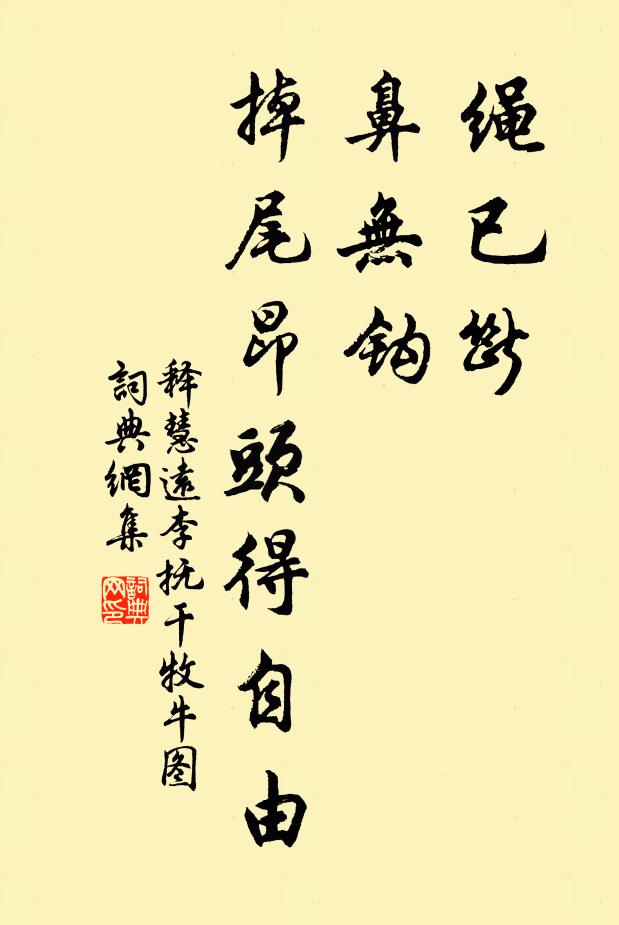 绳已断
鼻無钩
掉尾昂頭得自由
释慧遠李抚干牧牛图
詞典網集
詞典网印